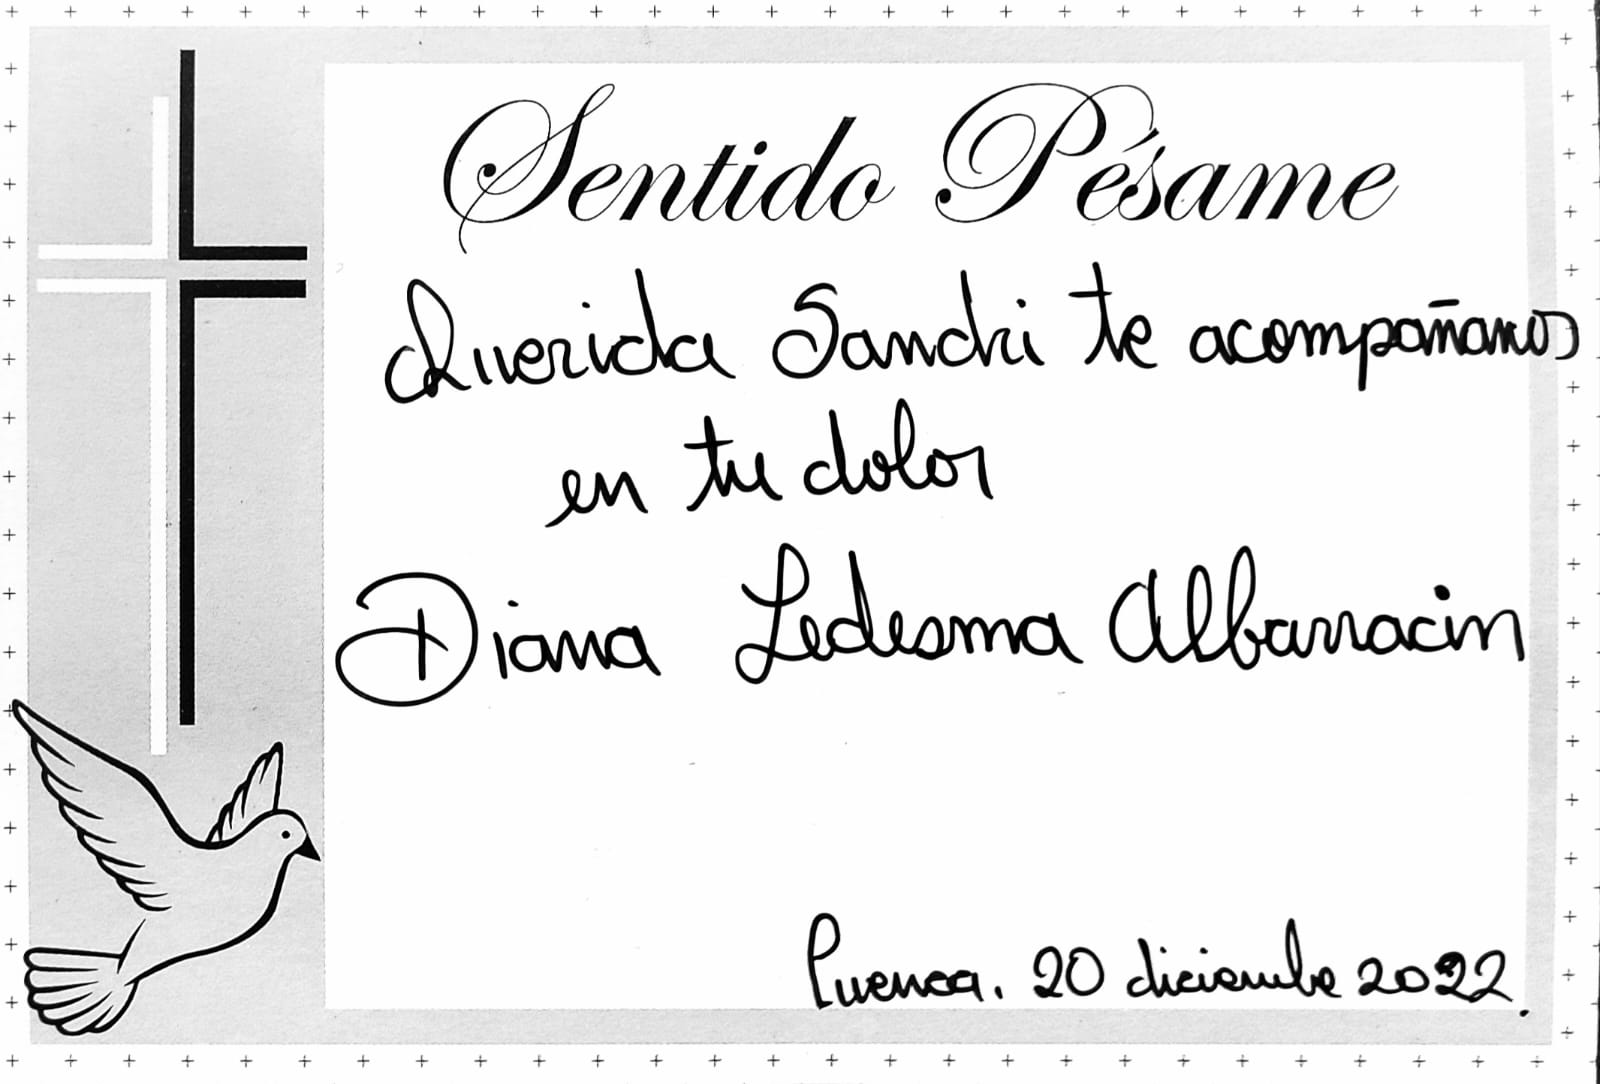 Sentido Pésame
Querida Sandri te acompañamos
en tu dolor
Diana Ledesma Albarracin
Cuenca. 20 diciembre 2022.